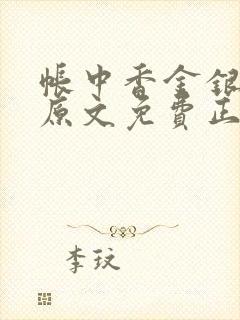 帳中香金銀
原文免費正
李玟